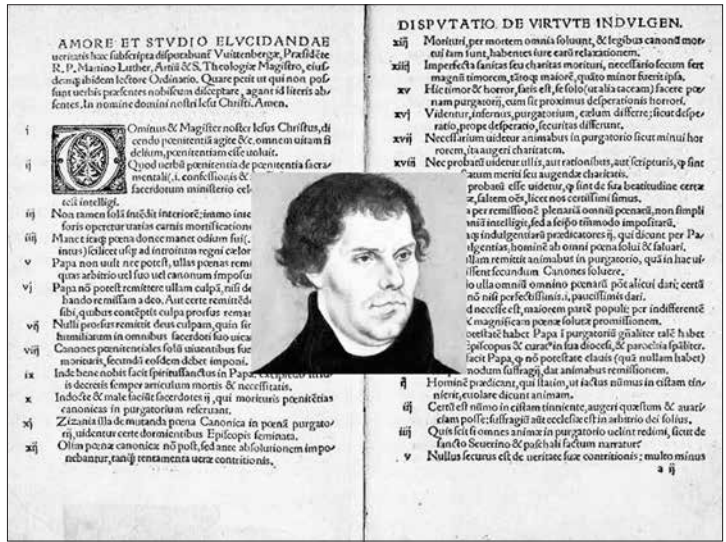 AMORE ET STVDIO ELVCIDANDAE
ueritatis hæc subscripta disputabunť Vuittenbergæ, Præsidẽte
R. P. Martino Luther, Artiũ & S. Theologiæ Magistro, eius-
demq́ ibidem lectore Ordinario. Quare petit ut qui non pos-
sunt uerbis præsentes nobiscum disceptare, agant id literis ab-
sentes. In nomine domini nostri Iesu Christi. Amen.
i DOminus & Magister noster Iesus Christus, di
cendo pœnitentiã agite &c. omnem uitam fi
delium, pœnitentiam esse uoluit.
ij Quod uerbũ pœnitentia de pœnitentia sacra
mentali(.i. confessionis &
sacerdotum ministerio cele
test intelligi.
iij Non tamen solã intẽdit interiorẽ: immo inte
foris operetur uarias carnis mortificatione
iiij Manet itaq́ pœna donec manet odium sui(.
intus) scilicet usq́ ad introitum regni cælor
v Papa non uult nec potest, ullas pœnas remi
quas arbitrio uel suo uel canonum imposui
vj Papa nõ potest remittere ullam culpã, nisi de
bando remissam a deo. Aut certe remittẽdo
sibi, quibus contẽptis culpa prorsus remar
vij Nulli prorsus remittit deus culpam, quin si
humiliatum in omnibus sacerdoti suo uica
viij Canones pœnitentiales solũ uiuentibus su
morituris, secundũ eosdem debet imponi.
ix Inde bene nobis facit spiritussanctus in Papa:
is decretis semper articulum mortis & necessitatis.
x Indocte & male faciũt sacerdotes ij, qui morituris pœnitẽtias
canonicas in purgatorium reseruant.
xj Zizania illa de mutanda pœna Canonica in pœnã purgato-
rij, uidentur certe dormientibus Episcopis seminata.
xij Olim pœnæ canonicæ nõ post, sed ante absolutionem impo-
nebantur, tanq̃ tentamenta ueræ contritionis.
DISPVTATIO DE VIRTVTE INDVLGEN.
xiij Morituri, per mortem omnia soluunt, & legibus canonũ mor-
tui iam sunt, habentes iure earũ relaxationem.
xiiij Imperfecta sanitas seu charitas morituri, necessario secum fert
magnũ timorem, tãtoq́ maiorẽ, quãto minor fuerit ipsa.
xv Hic timor & horror, satis est, se solo (ut alia taceam) facere pœ-
nam purgatorij, cum sit proximus desperationis horrori.
xvj Videntur, infernus, purgatorium, cælum differre: sicut despe-
ratio, prope desperatio, securitas differunt.
xvij Necessarium uidetur animabus in purgatorio sicut minui hor
rorem, ita augeri charitatem.
xviij Nec probatũ uidetur ullis, aut rationibus, aut scripturis, q̃ sint
statum meriti seu augendæ charitatis.
probatũ esse uidetur, q̃ sint de sua beatitudine certæ
æ, saltem oẽs, licet nos certissimi simus.
a per remissionẽ plenariã omniũ pœnarũ, non simpli
niũ intelligit, sed a seipso tñmodo impositarũ.
aq́ indulgentiarũ prædicatores ij, qui dicunt per Pa-
lgentias, hominẽ ab omni pœna solui & saluari.
llam remittit animabus in purgatorio, quã in hac ui-
issent secundum Canones soluere.
io ulla omniũ omnino pœnarũ põt alicui dari; certũ
nõ nisi perfectissimis.i. paucissimis dari.
d necesse est, maiorem partẽ populi; per indifferentẽ
magnificam pœnæ solutæ promissionem.
potestatẽ habet Papa ĩ purgatoriũ gñaliter talẽ habet
Episcopus & curatꝰ in sua diocesi, & parochia spãliter.
facit Papa, q̃ nõ potestate clauis (quã nullam habet)
modum suffragij, dat animabus remissionem.
ij Hominẽ prædicant, qui statim, ut iactus nũmus in cistam tin-
nierit, euolare dicunt animam.
iij Certũ est nũmo in cistam tinniente, augeri quæstum & auari-
ciam posse: suffragiũ aũt ecclesiæ est in arbitrio dei solius.
iiij Quis scit si omnes animæ in purgatorio uelint redimi, sicut de
sancto Seuerino & paschali factum narratur.
v Nullus securus est de ueritate suæ contritionis; multo minus
a ij